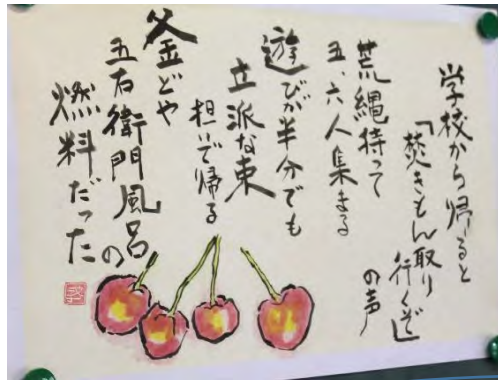 学校から帰ると
「焚きもん取り
行くぞ」
の声
荒縄持って
五、六人集まる
遊びが半分でも
立派な束
担いで帰る
釜どや
五右衛門風呂の
燃料だった